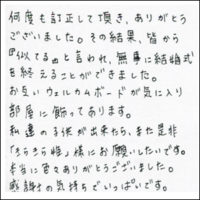 何度も訂正して頂き、ありがとう
ございました。その結果、皆から
『似てる』と言われ、無事に結婚式
を終えることができました。
お互いウェルカムボードが気に入り
部屋に飾ってあります。
私達の子供が出来たら、また是非
「きらきら姫」様にお願いしたいです。
本当に色々ありがとうございました。
感謝の気持ちでいっぱいです。